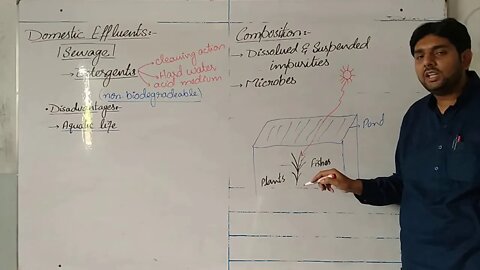 Domestic Effluents:-
Sewage
→ Detergents
cleaning action
Hard water
acid medium
(non-biodegradeable)
• Disadvantages:-
→ Aquatic life
Composition:-
→ Dissolved & Suspended
impurities
→ Microbes
Pond
Plants
Fishes